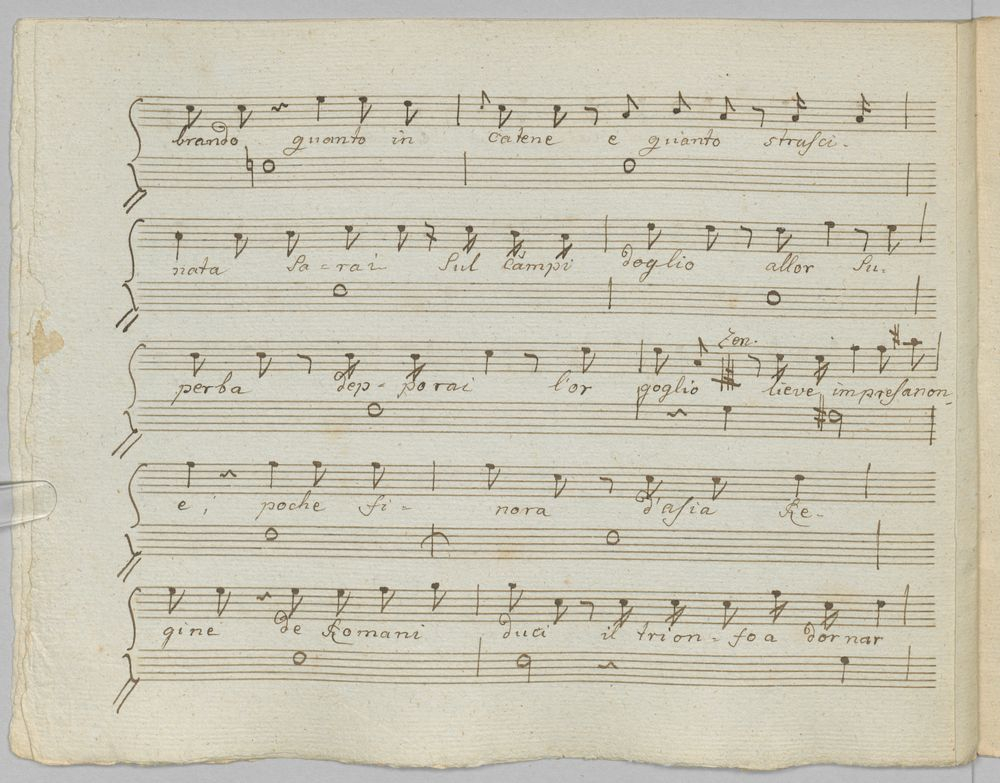 brando quanto in catene e quanto strasci-
nata sa-rai sul Campi doglio allor su-
Zen.
perba dep-porai l'or goglio lieve impresa non
e; poche fi- nora d'asia Re-
gine de Romani duci il trion-fo a dornar